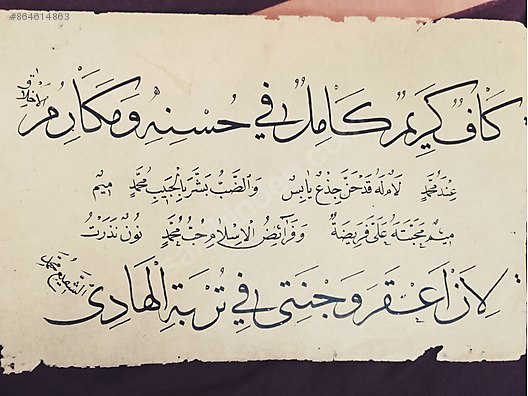 #864614863
كَافٌ كَرِيمٌ كَامِلٌ فِي حُسْنِهِ وَمَكَارِمُ الْأَخْلَاقِ
عِنْدَ مُحَمَّدٍ لَامٌ لَهُ قَدْ حَنَّ جِذْعٌ يَابِسٌ وَالضَّبُّ بَشَّرَ بِالْحَبِيبِ مُحَمَّدٍ مِيمٌ
مِيمٌ مَحَبَّتُهُ عَلَيَّ فَرِيضَةٌ وَفَرَائِضُ الْإِسْلَامِ حُبُّ مُحَمَّدٍ نُونٌ نَذَرْتُ
لِأَنْ أُعَفِّرَ وَجْنَتِي فِي تُرْبَةِ الْهَادِي الشَّفِيعِ مُحَمَّدٍ